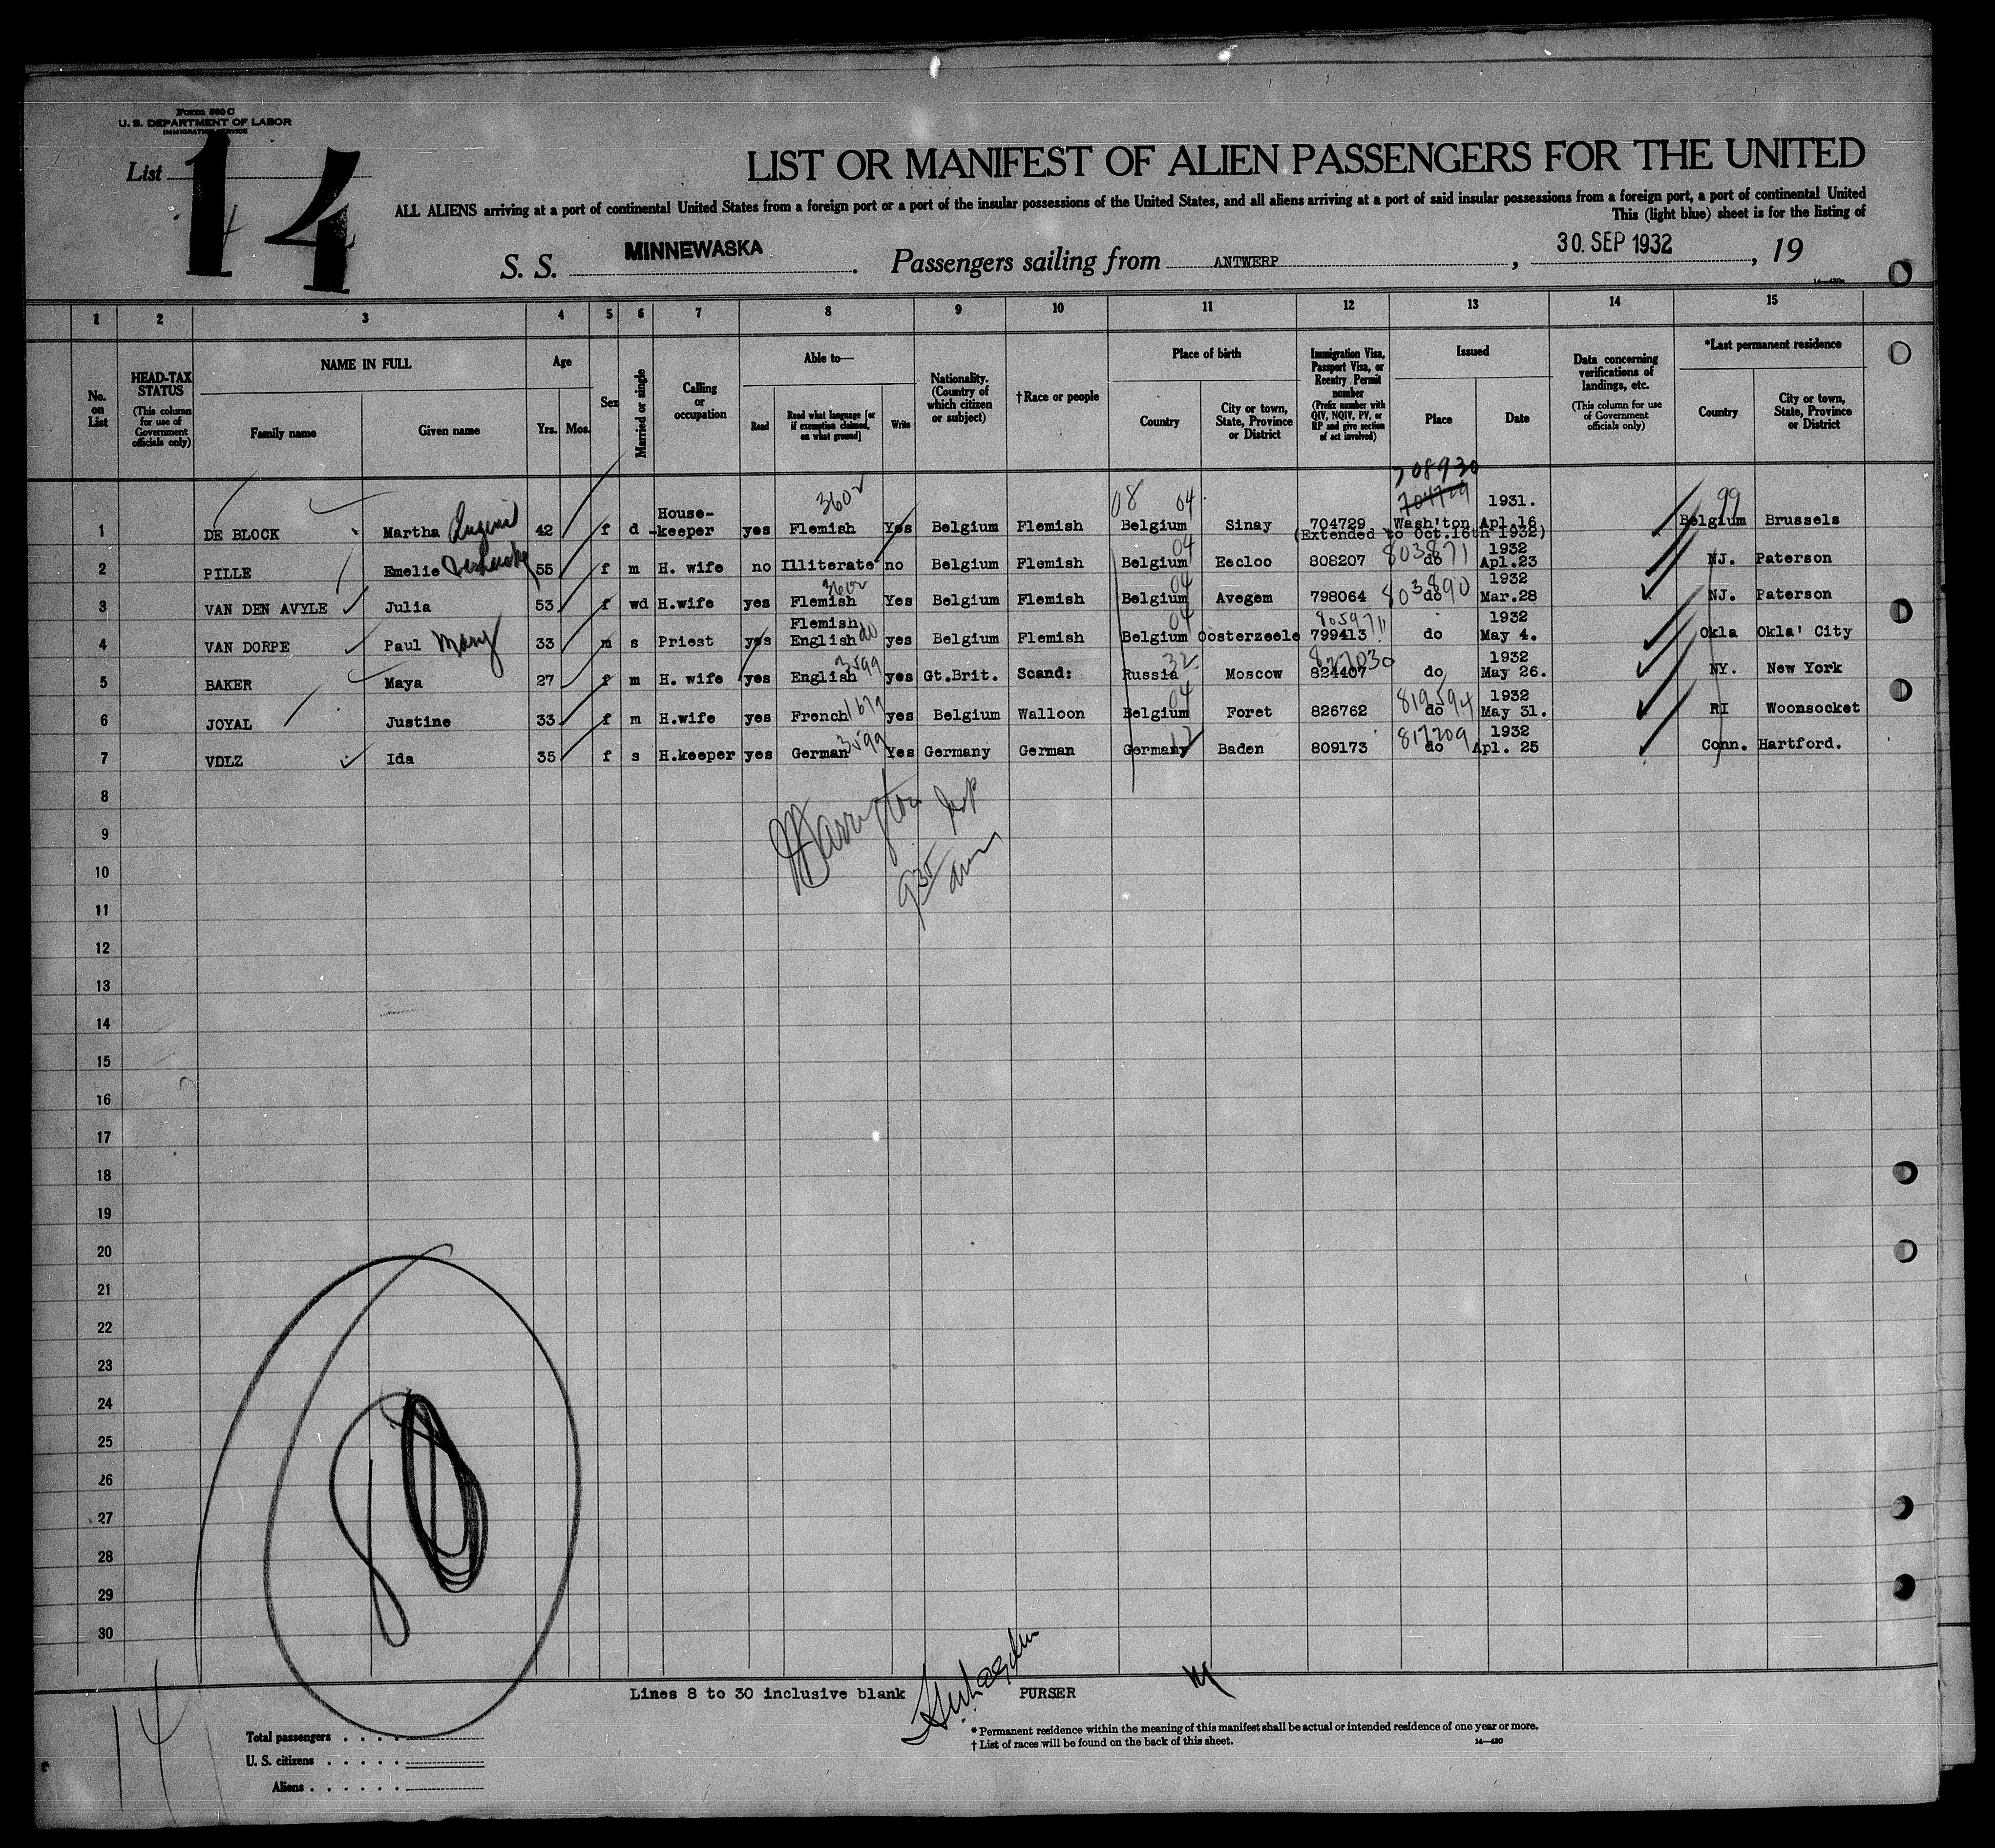 Form 500 C
U. S. DEPARTMENT OF LABOR
IMMIGRATION SERVICE
List 14
LIST OR MANIFEST OF ALIEN PASSENGERS FOR THE UNITED
ALL ALIENS arriving at a port of continental United States from a foreign port or a port of the insular possessions of the United States, and all aliens arriving at a port of said insular possessions from a foreign port, a port of continental United
This (light blue) sheet is for the listing of
S. S. MINNEWASKA. Passengers sailing from ANTWERP, 30. SEP 1932, 19
1 2 3 4 5 6 7 8 9 10 11 12 13 14 15
No. on List
HEAD-TAX STATUS (This column for use of Government officials only)
NAME IN FULL Family name Given name
Age Yrs. Mos.
Sex
Married or single
Calling or occupation
Able to— Read Read what language [or if exemption claimed, on what ground] Write
Nationality. (Country of which citizen or subject)
†Race or people
Place of birth Country City or town, State, Province or District
Immigration Visa, Passport Visa, or Reentry Permit number (Prefix number with QIV, NQIV, PV, or RP and give section of act involved)
Issued Place Date
Data concerning verifications of landings, etc. (This column for use of Government officials only)
*Last permanent residence Country City or town, State, Province or District
708930
3602 08 04 704729 1931. 99
1 DE BLOCK Martha 42 f d House-keeper yes Flemish Yes Belgium Flemish Belgium Sinay 704729 Wash'ton Apl.16 Belgium Brussels
(Extended to Oct.16th 1932)
04 803871 1932
2 PILLE Emelie 55 f m H. wife no Illiterate no Belgium Flemish Belgium Eecloo 808207 do Apl.23 NJ. Paterson
3602 04 803890 1932
3 VAN DEN AVYLE Julia 53 f wd H.wife yes Flemish Yes Belgium Flemish Belgium Avegem 798064 do Mar.28 NJ. Paterson
Flemish 04 805971 1932
4 VAN DORPE Paul Mary 33 m s Priest yes English do yes Belgium Flemish Belgium Oosterzeele 799413 do May 4. Okla Okla' City
3599 32 827030 1932
5 BAKER Maya 27 f m H. wife yes English yes Gt.Brit. Scand: Russia Moscow 824407 do May 26. NY. New York
04 819594 1932
6 JOYAL Justine 33 f m H.wife yes French yes Belgium Walloon Belgium Foret 826762 do May 31. RI Woonsocket
3599 12 817209 1932
7 VOLZ Ida 35 f s H.keeper yes German Yes Germany German Germany Baden 809173 do Apl. 25 Conn. Hartford.
8
9
10
11
12
13
14
15
16
17
18
19
20
21
22
23
24
25
26
27
28
29
30
Lines 8 to 30 inclusive blank PURSER
14
Total passengers . . . .
U. S. citizens . . . . .
Aliens . . . . . .
* Permanent residence within the meaning of this manifest shall be actual or intended residence of one year or more.
† List of races will be found on the back of this sheet.
14—430